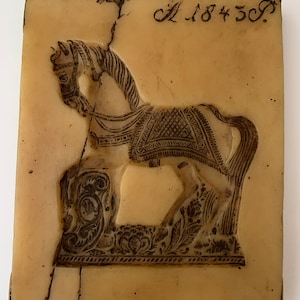 A 1843 P.